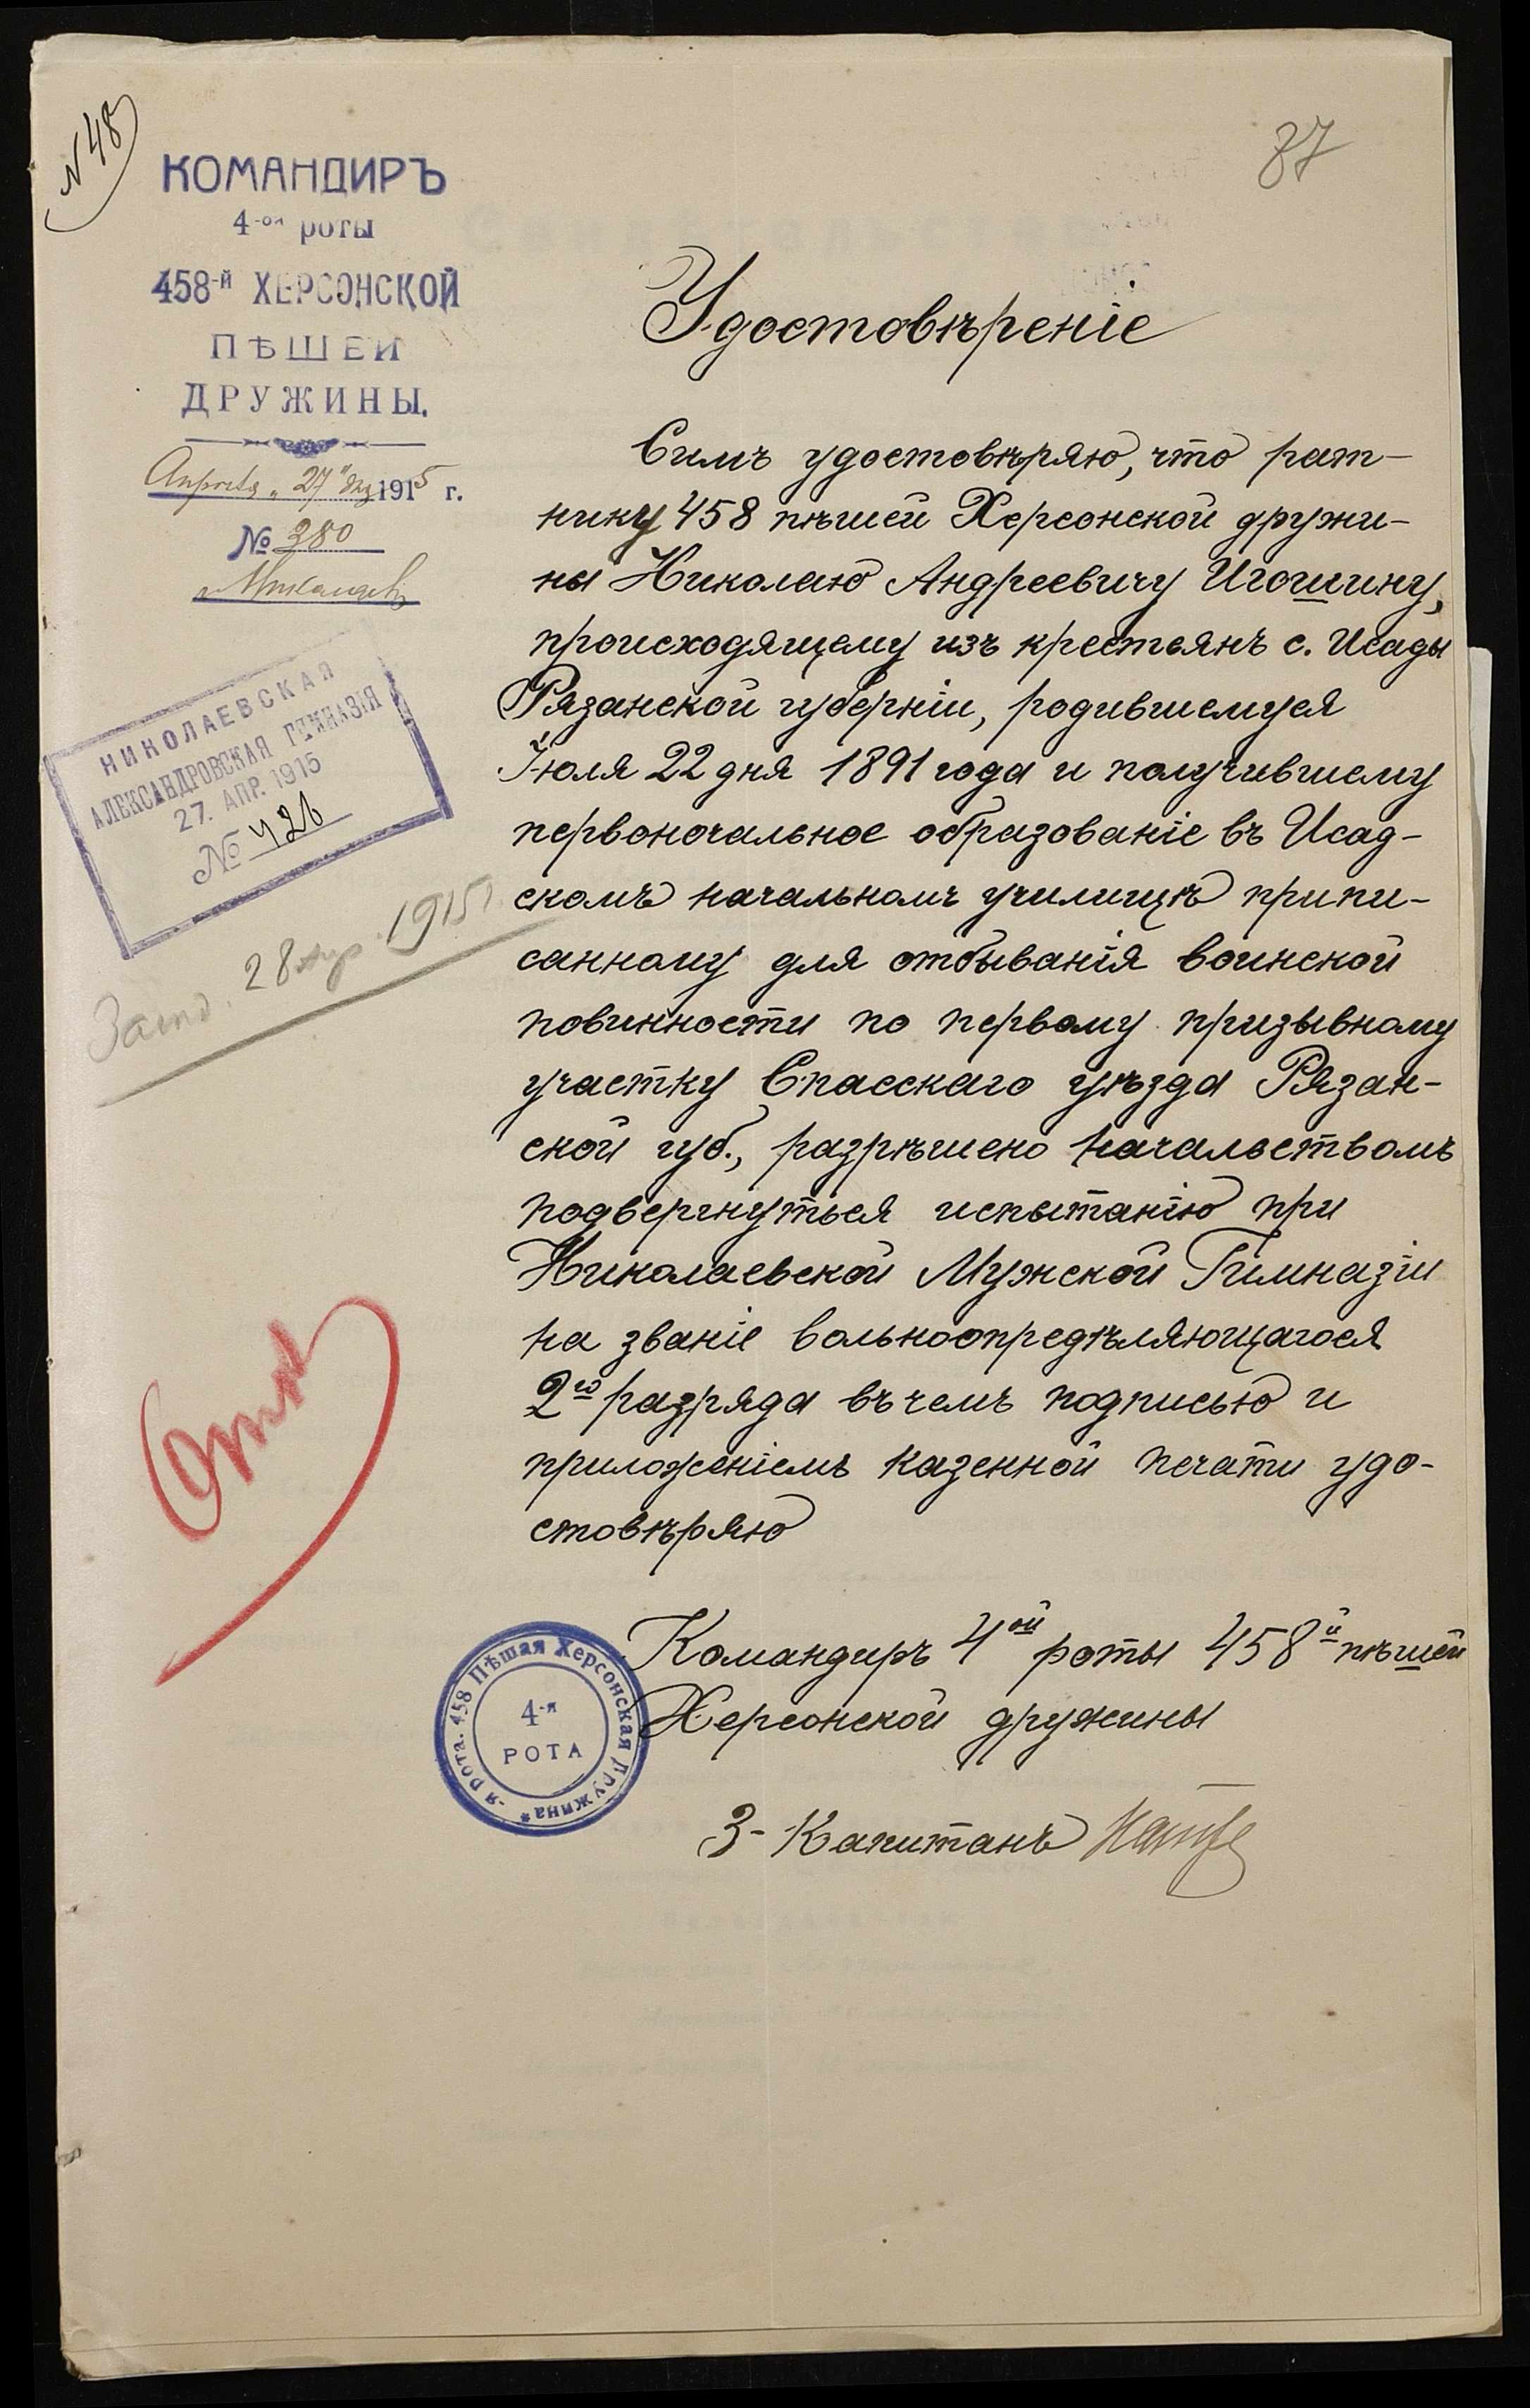 N 48
87
КОМАНДИРЪ
4-ой роты
458-й ХЕРСОНСКОЙ
ПѢШЕЙ
ДРУЖИНЫ.
Апрѣля „27" дня 1915 г.
№ 380
г. Николаевъ
НИКОЛАЕВСКАЯ
АЛЕКСАНДРОВСКАЯ ГИМНАЗІЯ
27. АПР. 1915
№ 426
28 апр. 1915
Удостовѣреніе
Симъ удостовѣряю, что рат-
нику 458 пѣшей Херсонской дружи-
ны Николаю Андреевичу Игошину,
происходящему изъ крестьянъ с. Исады
Рязанской губерніи, родившемуся
Іюля 22 дня 1891 года и получившему
первоночальное образованіе въ Исад-
скомъ начальномъ училищѣ припи-
санному для отбыванія воинской
повинности по первому призывному
участку Спасскаго уѣзда Рязан-
ской губ., разрѣшено начальствомъ
подвергнуться испытанію при
Николаевской Мужской Гимназіи
на званіе вольноопредѣляющагося
2го разряда въ чемъ подписью и
приложеніемъ казенной печати удо-
стовѣряю
Командиръ 4ой роты 458й пѣшей
Херсонской дружины
4-я
РОТА
-я рота. 458 Пѣшая Херсонская Дружина*
З-Капитанъ